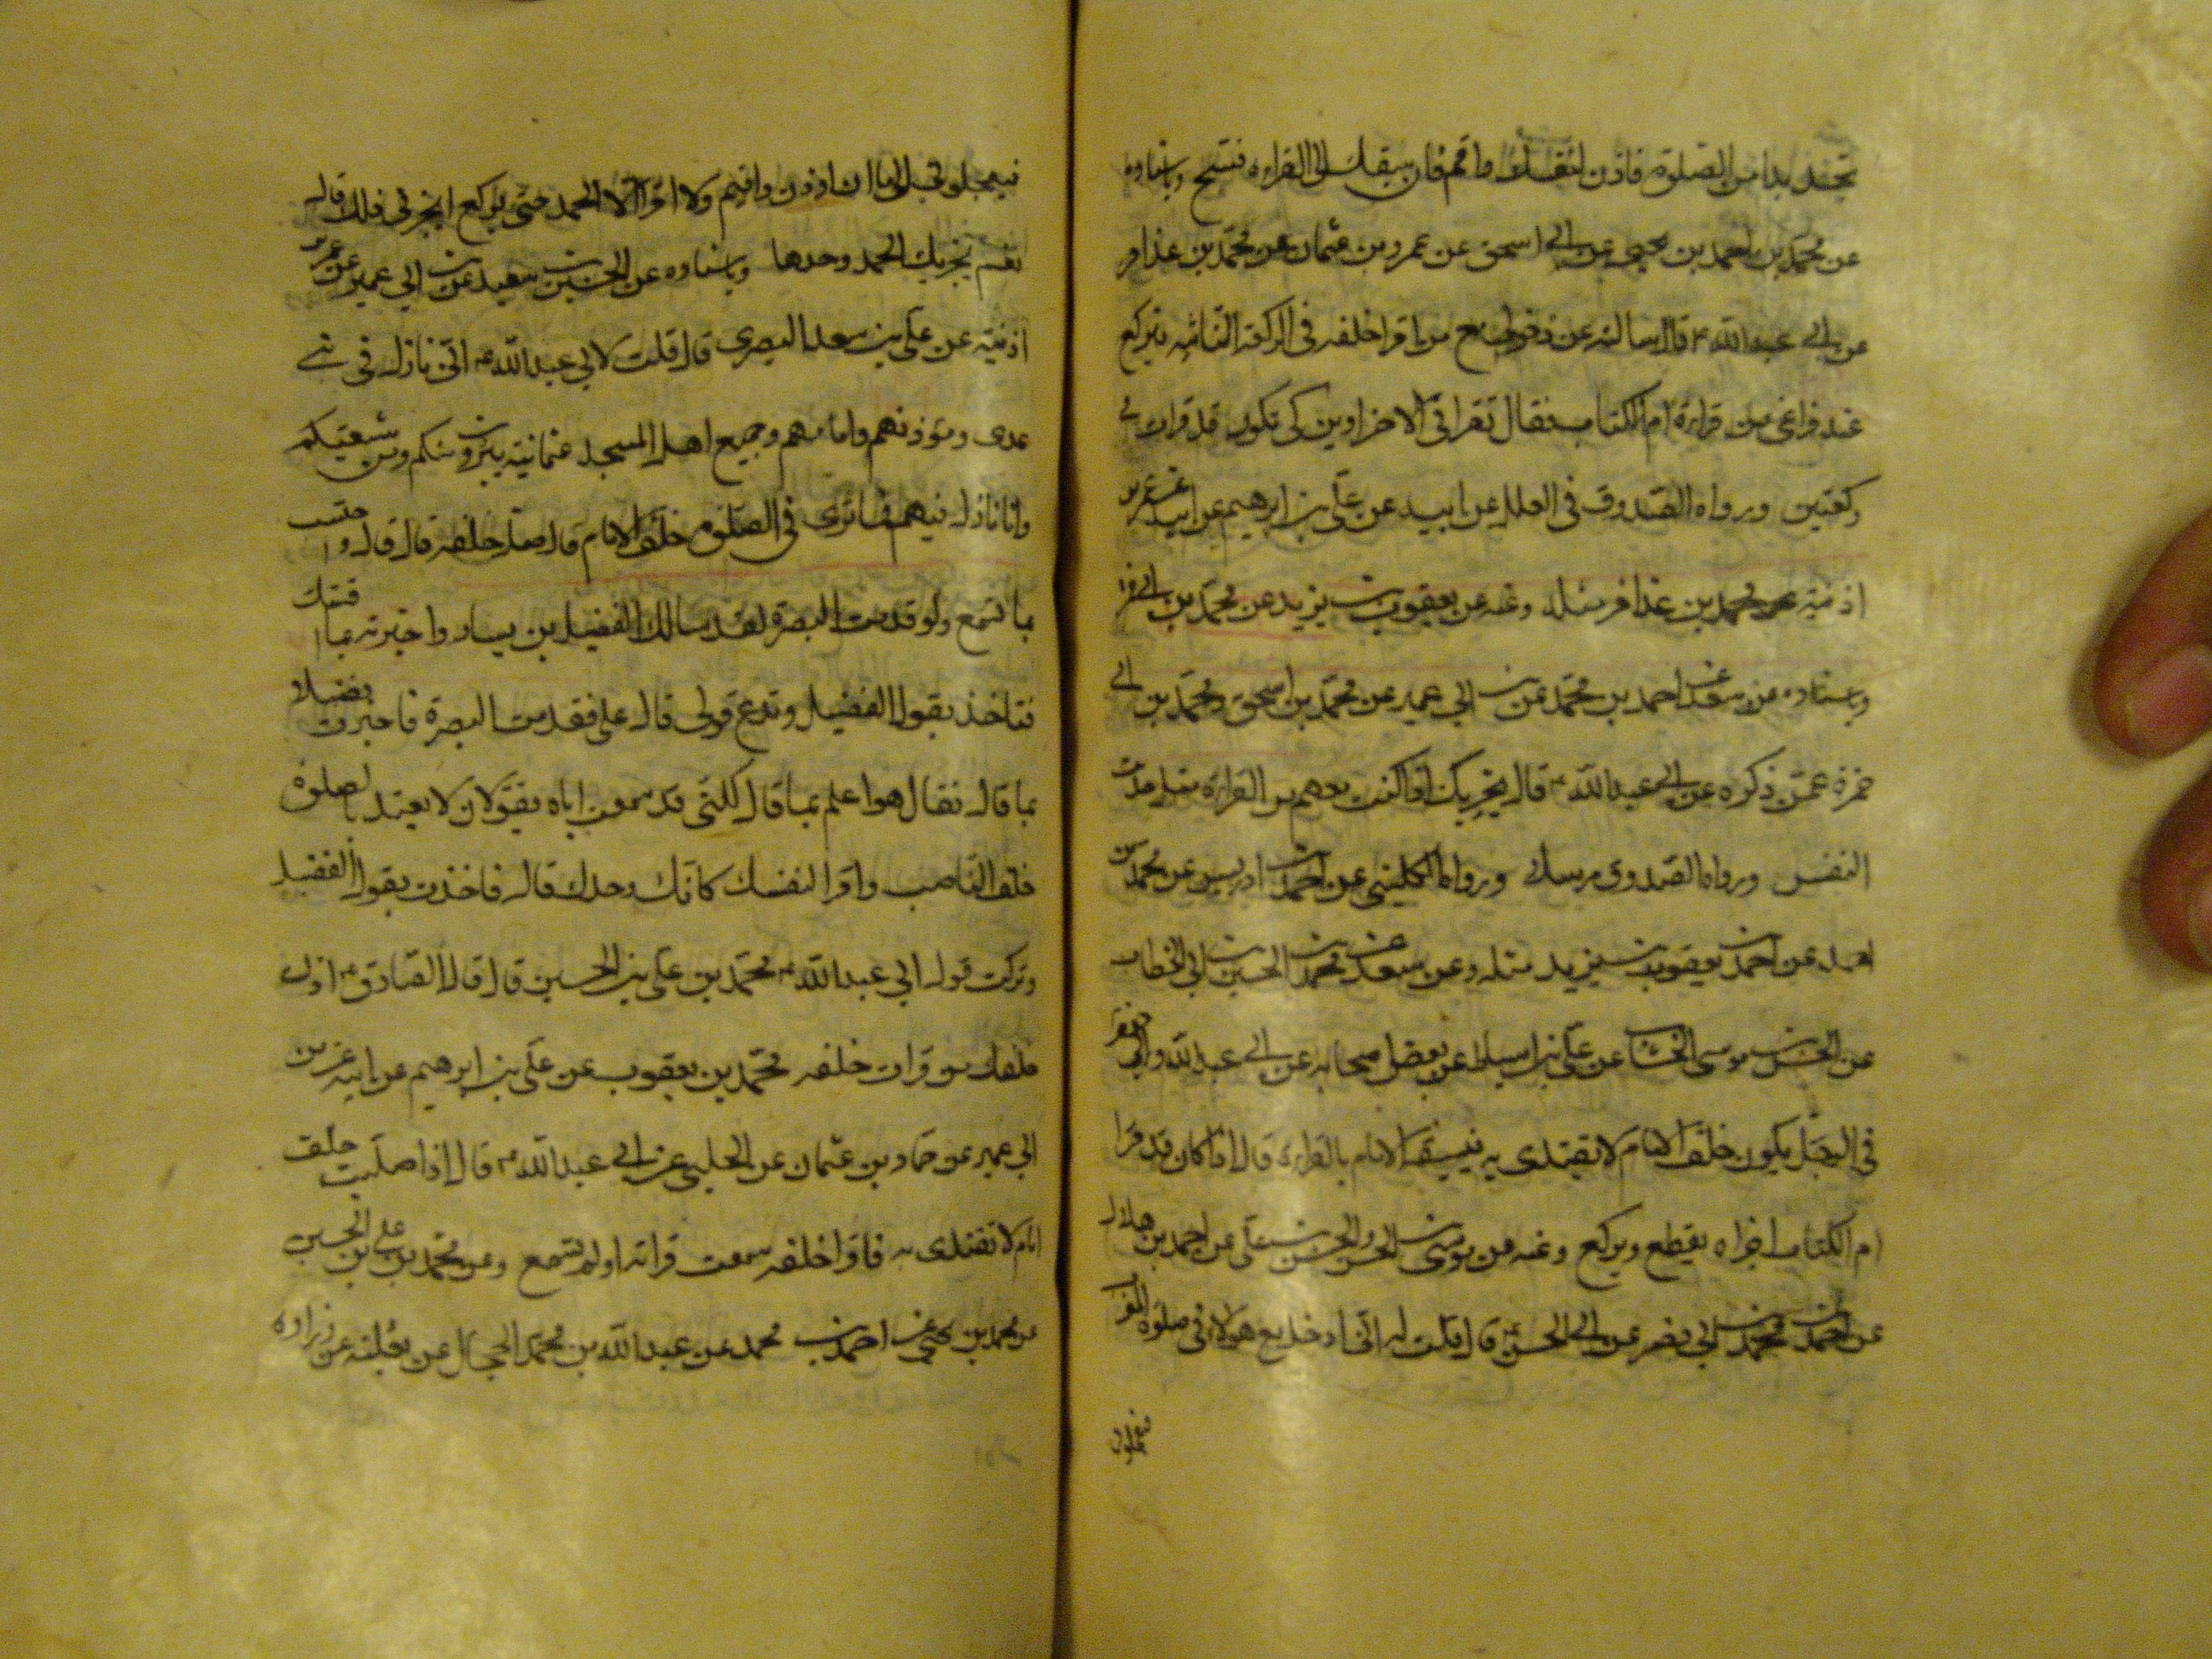 تجد بدا من الصلوة فاذن لنفسك واقم فان سبقك الى القراءة فسبح وباسناده
عن محمد بن احمد بن يحيى عن ابي اسحق عن عمرو بن عثمان عن محمد بن عذافر
عن ابي عبد الله ع قال سالته عن دخولي مع من اقرا خلفه في الركعة الثانيه فيركع
عند فراغي من قراءة ام الكتاب فقال تقرا في الاخراوين كي تكون قد قرات في
ركعتين ورواه الصدوق في العلل عن ابيه عن علي بن ابرهيم عن ابيه عن عمر بن
اذينة عن محمد بن عذافر مثله وعنه عن يعقوب بن يزيد عن محمد بن
وباسناده عن سعد عن احمد بن محمد عن بن ابي عمير عن محمد بن اسحق ومحمد بن ابي
حمزة عمن ذكره عن ابي عبد الله ع قال يجزيك اذا كنت معهم من القراءة مثل حديث
النفس ورواه الصدوق مرسلا ورواه الكليني عن احمد بن ادريس عن محمد بن
احمد عن يعقوب بن يزيد مثله وعن سعد عن محمد بن الحسين بن ابي الخطاب
عن الحسن بن موسى الخشاب عن علي بن اسباط عن بعض اصحابه عن ابي عبد الله وابي جعفر
في الرجل يكون خلف الامام لا يقتدى به فيسبقه الامام بالقراءة قال اذا كان قد قرا
ام الكتاب اجزاه يقطع ويركع وعنه عن موسى بن الحسن والحسن بن علي عن احمد بن هلال
عن احمد بن محمد بن ابي نصر عن ابي الحسن ع قال قلت له اني ادخل مع هولاء في صلوة المغرب
فيعجلوني
فيعجلوني الى ما ان اوذن واقيم ولا اقرا الا الحمد حتى يركع ايجزني ذلك قال
نعم تجزيك الحمد وحدها وباسناده عن الحسين بن سعيد عن بن ابي عمير عن عمر بن
اذينة عن علي بن سعد البصري قال قلت لابي عبد الله ع اني نازل في بني
عدى ومؤذنهم وامامهم وجميع اهل المسجد عثمانية يتبرؤن منكم ومن شيعتكم
وانا نازل فيهم فما ترى في الصلوة خلف الامام قال صل خلفه قال قال واحتسب
بما تسمع ولو قدمت البصرة لقد سالك الفضيل بن يسار واخبرته بما افتيتك
فتاخذ بقول الفضيل وتدع قولي قال علي فقدمت البصرة فاخبرت فضيلا
بما قال فقال هو اعلم بما قال لكني قد سمعته اباه يقولان لا يعتد بالصلوة
خلف الناصب واقرا لنفسك كانك وحدك قال فاخذت بقول الفضيل
وتركت قول ابي عبد الله ع محمد بن علي بن الحسين قال قال الصادق ع اذن
خلف من قرات خلفه محمد بن يعقوب عن علي بن ابرهيم عن ابيه عن بن
ابي عمير عن حماد بن عثمان عن الحلبي عن ابي عبد الله ع قال اذا صليت خلف
امام لا تقتدى به فاقرا خلفه سمعت قراته او لم تسمع وعن محمد بن علي بن الحسين
عن محمد بن يحيى عن احمد بن محمد عن عبد الله بن محمد الحجال عن ثعلبة عن زرارة